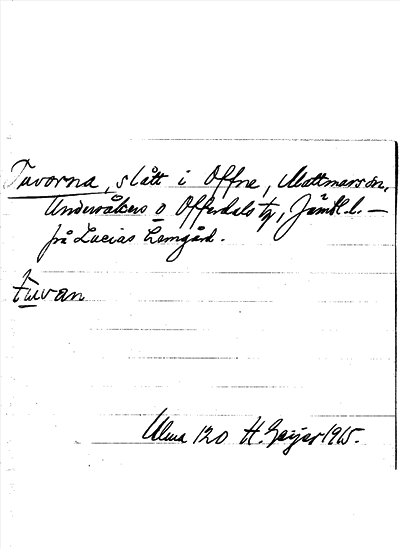 Tavorna, slått i Offne, Mattmars sn,
Undersåkers o Offerdals tg, Jämtl. l. —
på Lucias Lemgård.
tavan
Ulma 120 H. Geijer 1915.